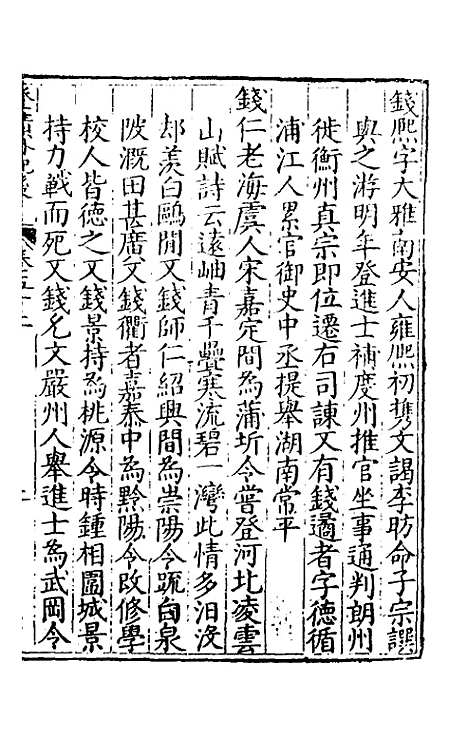 錢熈字大雅南安人雍熈初携文謁李昉命子宗諤
與之游明年登進士補度州推官坐事通判朗州
徙衡州真宗即位遷右司諫又有錢遹者字德循
浦江人累官御史中丞提舉湖南常平
錢仁老海虞人宋嘉定間為蒲圻令嘗登河北凌雲
山賦詩云遠岫青千疊寒流碧一灣此情多汨没
却羡白鷗閒又錢師仁紹興間為崇陽令䟽白泉
陂溉田甚廣又錢衢者嘉泰中為黔陽令改修學
校人皆德之又錢景持為桃源令時鍾相圍城景
持力戰而死又錢允文嚴州人舉進士為武岡令